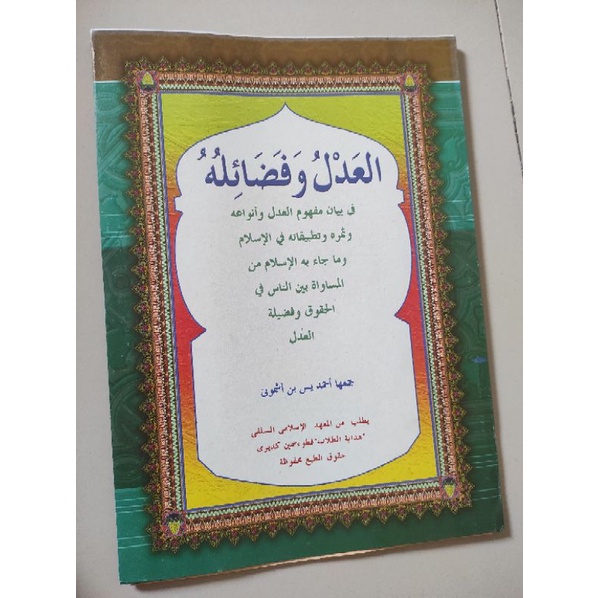 العَدْلُ وَفَضَائِلُهُ
فى بيان مفهوم العدل وأنواعه
وثمره وتطبيقاته في الإسلام
وما جاء به الإسلام من
المساواة بين الناس في
الحقوق وفضيلة
العدل
جمعها أحمد يس بن أشمونى
يطلب من المعهد الإسلامى السلفى
"هداية الطلاب" فطوء سمبن كديرى
حقوق الطبع محفوظة